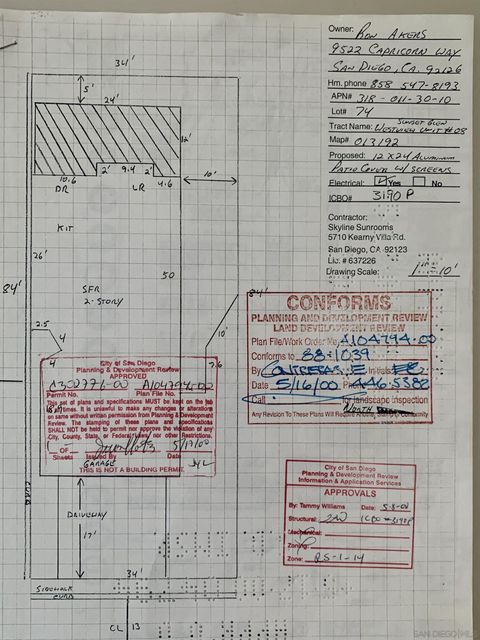 34'
5'
24'
12'
10.6
2'
9.4
2'
4.6
10'
DR
LR
KIT
26'
50
84'
84'
SFR
2-STORY
2.5
4
4
10'
7.6
GARAGE
CURB
DRIVEWAY
17'
34'
SIDEWALK
CURB
CL
13
Owner: RON AKERS
9522 CAPRICORN WAY
SAN DIEGO, CA. 92126
Hm. phone 858 547-8193
APN# 318-011-30-10
Lot# 74
Tract Name:
Map# 013192
Proposed: 12 X 24 ALUMINUM
PATIO COVER W/ SCREENS
Electrical: Yes No
ICBO# 3190 P
Contractor:
Skyline Sunrooms
5710 Kearny Villa Rd.
San Diego, CA 92123
Lic. # 637226
Drawing Scale: 1"=10'
CONFORMS
PLANNING AND DEVELOPMENT REVIEW
LAND DEVELOPMENT REVIEW
Plan File/Work Order No. A104794-00
Conforms to 88-1039
By CONTRERAS, E Initials EC
Date 5/16/00 Phone 446.5382
Call for landscape inspection
Any Revision To These Plans Will Require Another Statutory Conformity
City of San Diego
Planning & Development Review
APPROVED
C300771-00 A104794-00
Permit No. Plan File No.
This set of plans and specifications MUST be kept on the
job at all times. It is unlawful to make any changes or alterations
on same without written permission from Planning & Development
Review. The stamping of these plans and specifications
SHALL NOT be held to permit nor approve the violation of any
City, County, State or Federal law nor other Restrictions.
OF
5/17/00
Sheets Issued By Date
THIS IS NOT A BUILDING PERMIT
City of San Diego
Planning & Development Review
Information & Application Services
APPROVALS
By: Tammy Williams Date: 5-8-00
Structural: ICBO #3190P
Mechanical:
Zoning:
Zone: RS-1-14
SAN DIEGO MLS